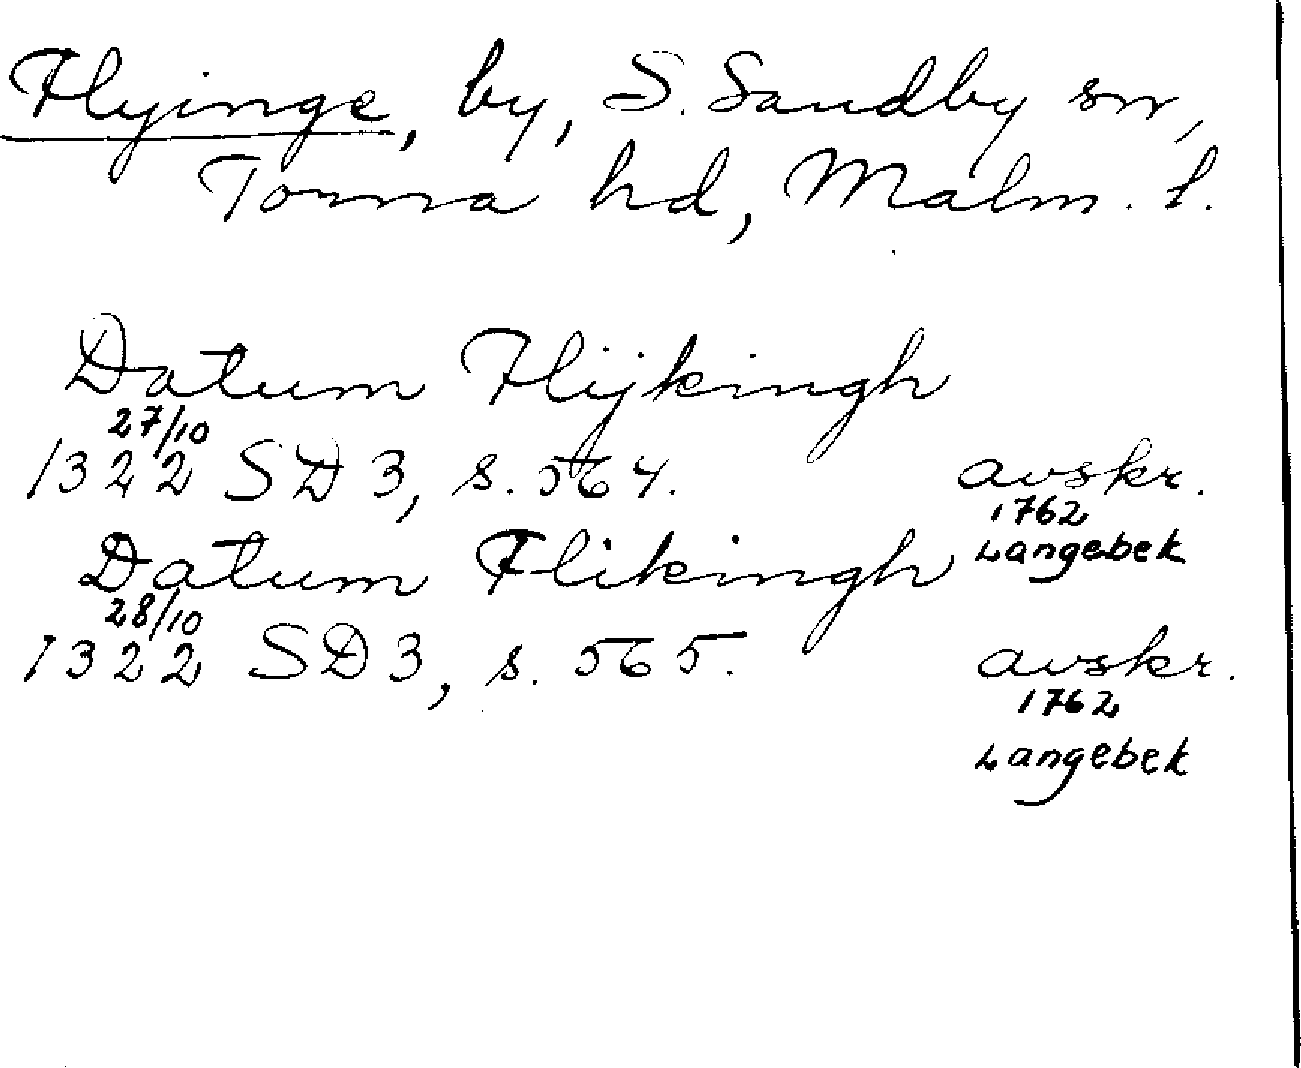 Flyinge, by, S. Sandby sn,
Torna hd, Malm. l.
Datum Flijkingh
27/10
1322 SD 3, s. 564. avskr.
1762
Langebek
Datum Flikingh
28/10
1322 SD 3, s. 565. avskr.
1762
Langebek